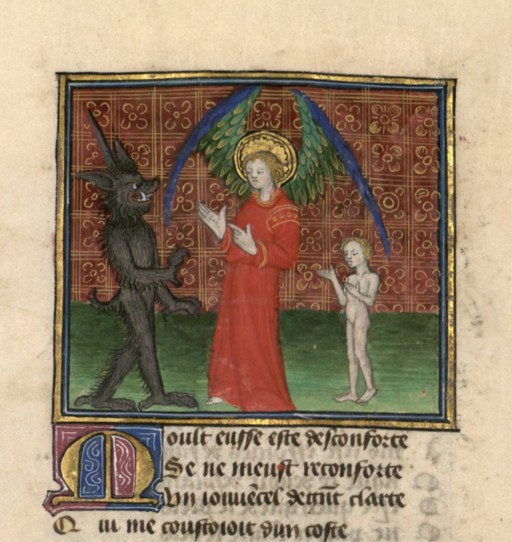 Moult eusse este desconforte
Se ne meust reconforte
Vn iouuēcel de tint clarte
Qui me coustoioit dun coste